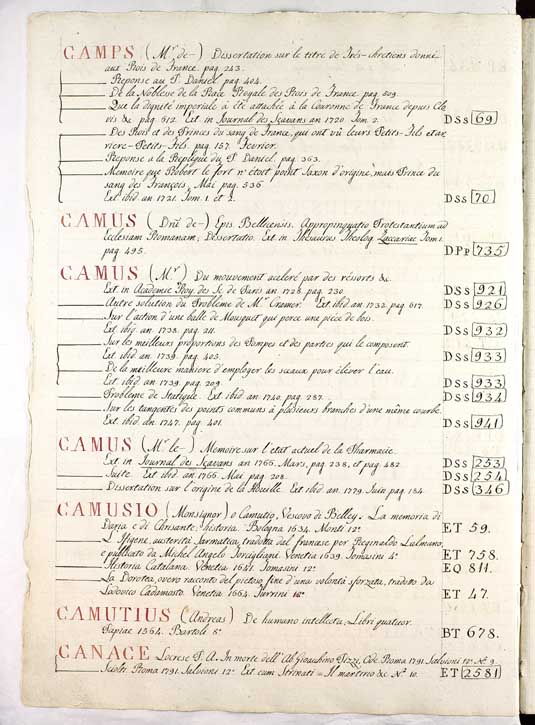 CAMPS (Mr. de-) Dissertation sur le titre de Trés-chretiens donné
aux Rois de France. pag. 243.
Reponse au P. Daniel. pag. 404.
De la Noblesse de la Race Royale des Rois de France. pag. 509.
Que la dignité imperiale à été attachée à la Couronne de France depuis Clo
vis &c pag. 612. Ext. in Journal des Sçavans an 1720. Tom. 2. DSS 69
Des Rois et des Princes du sang de France, qui ont vû leurs Petits-Fils et ar,
riere-Petits-Fils. pag. 157. Fevrier.
Reponse a la Replique du P. Daniel. pag. 363.
Memoire que Robert le fort n' étoit point Saxon d'origine, mais Prince du
sang des François, Mai pag. 536
Ext. ibid an 1721. Tom. 1. et 2. DSS 70
CAMUS (Dñi de-) Epis. Bellicensis. Appropinquatio Protestantium ad
Ecclesiam Romanam; Dissertatio. Ext. in Thesaurus Theolog. Zaccariae Tom. 1.
pag. 495. DPp 735
CAMUS (Mr.) Du mouvement aceleré par des réssorts &c.
Ext. in Academie Roy. des Sc. de Paris an 1728. pag. 230. DSS 921
Autre solution du Probleme de Mr. Cramer. Ext. ibid an 1732. pag. 617. DSS 926
Sur l'action d'une balle de Mousquet qui perce une pièce de bois.
Ext. ibid. an 1738. pag. 211. DSS 932
Sur les meilleurs proportions des Pompes et des parties qui le composent.
Ext. ibid an 1739. pag. 405. DSS 933
De la meilleure maniere d'employer les sceaux pour élever l'eau.
Ext. ibid an 1739. pag. 209. DSS 933
Probleme de Statique. Ext. ibid an 1740. pag. 287. DSS 934
Sur les tangentes des points communs à plusieurs branches d'une même courbe
Ext. ibid an 1747. pag. 401. DSS 941
CAMUS (Mr. le-) Memoire sur l'état actuel de la Pharmacie.
Ext. in Journal des Sçavans an 1765. Mars, pag. 238, et pag. 482 DSS 253
Suite. Ext. ibid an 1766. Mai pag. 208. DSS 254
Dissertation sur l'origine de la Houille. Ext. ibid an 1779. Juin pag. 184. DSS 346
CAMUSIO (Monsignor) o Camutio, Vescovo di Belley. La memoria di
Daria e di Crisante; historia. Bologna 1634. Monti 12° ET 59.
L' Ifigene, austerità Sarmatica, tradotta dal francese per Reginaldo Lalmano,
e pulibato da Michel Angelo Torcigliani. Venetia 1639. Tomasini 4° ET 758.
Historia Catalana. Venetia 1641. Tomasini 12° EQ 811.
La Dorotea, overo racconto del pietoso fine d'una volontà sforzata, tradotto da
Lodovico Cadamosto. Venetia 1664. Turrini 16° ET 47.
CAMUTIUS (Andreas) De humano intellectu, Libri quatuor.
Papiae 1564. Bartoli 8° BT 678.
CANACE Locrese P. A. In morte dell' Ab. Gioachino Pizzi, Ode. Roma 1791. Salvioni 12° N° 9.
Sciolti. Roma 1791. Salvioni 12° Ext. cum Strinati = Il martirio &c N° 10. ET 2581